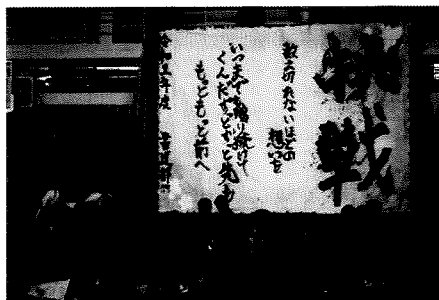 挑戦
数え切れないほどの
想いを
いつまでも り続けて
くんだずっとずっと先へ
もっともっと前へ
年度 書道部